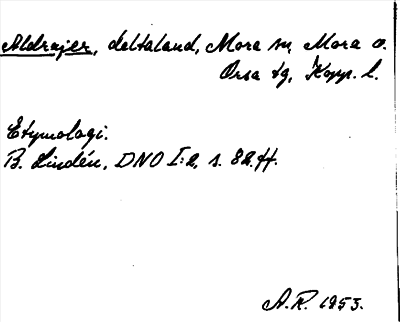 Aldrajer, deltaland, Mora sn, Mora o.
Orsa tg, Kopp. l.
Etymologi.
B. Lindén, DNO I:2, s. 82.ff.
A.R. 1953.